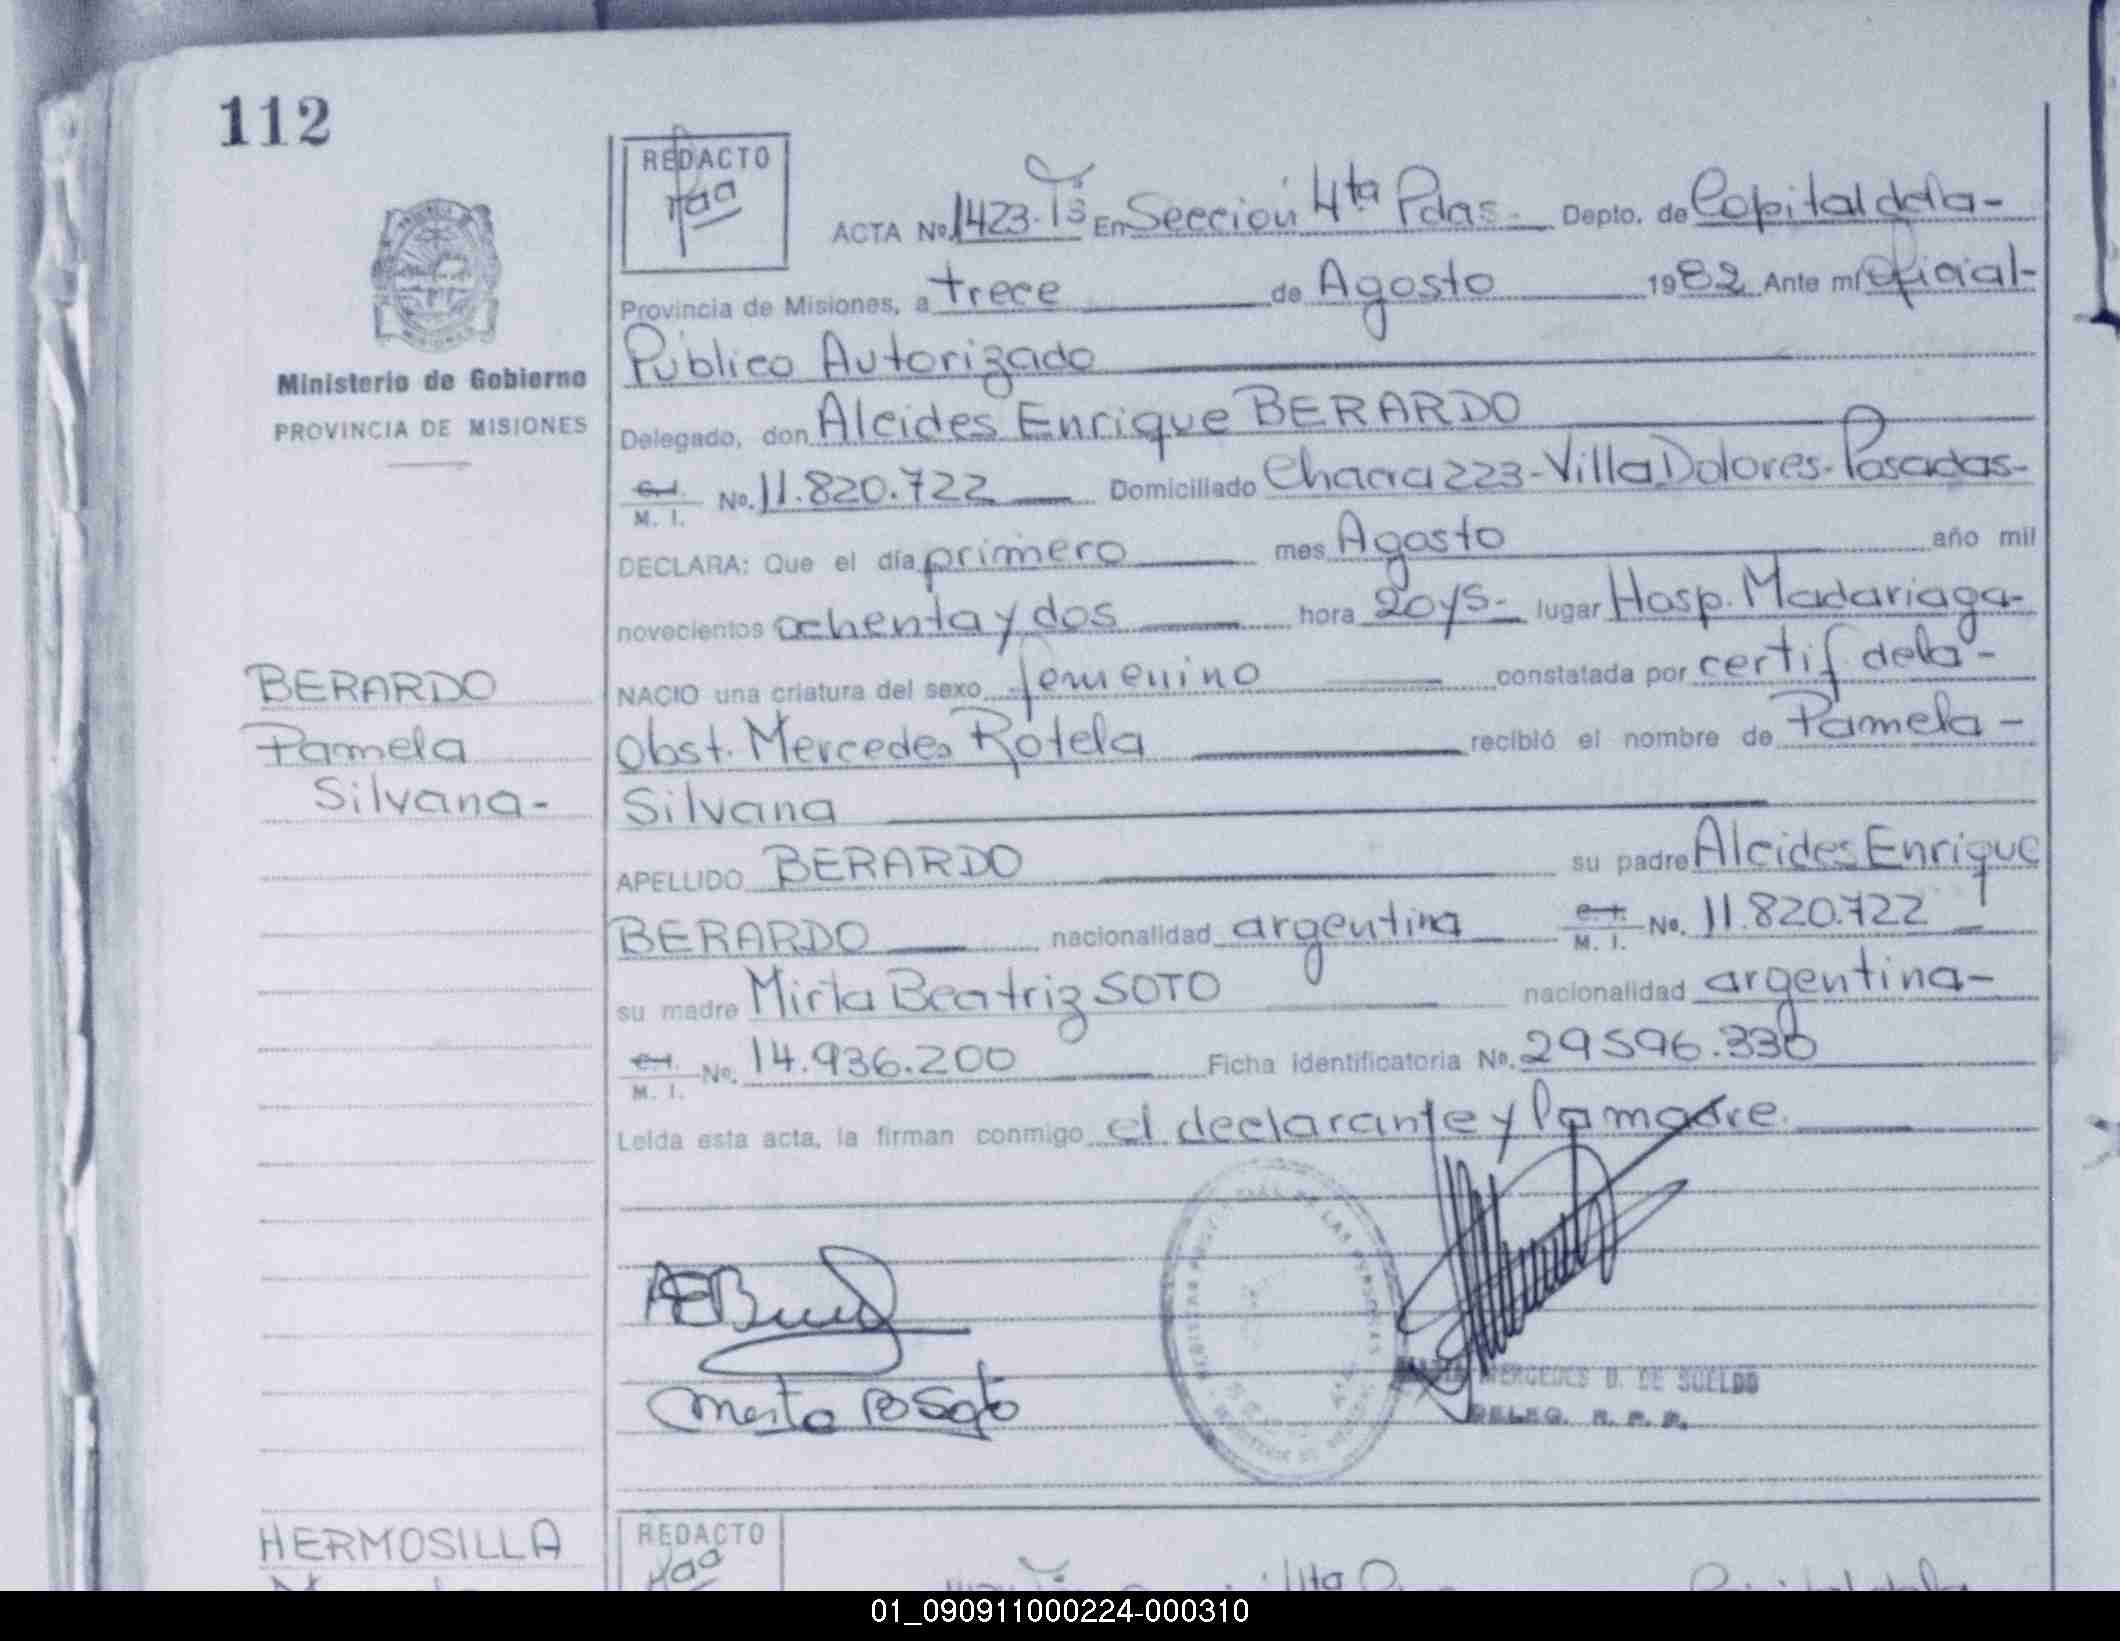 112
REDACTO
ACTA No. 1423. Tº En Sección 4ta Pdas. Depto. de Capital de la-
Provincia de Misiones, a trece de Agosto 1982 Ante mí Oficial-
Público Autorizado
Ministerio de Gobierno
PROVINCIA DE MISIONES
Delegado, don Alcides Enrique BERARDO
M. I. No. 11.820.722 Domiciliado Chacra 223-Villa Dolores-Posadas-
DECLARA: Que el día primero mes Agosto año mil
novecientos ochenta y dos hora 20 y 5- lugar Hosp. Madariaga-
NACIO una criatura del sexo femenino constatada por certif. de la-
Obst. Mercedes Rotela recibió el nombre de Pamela-
Silvana
BERARDO
Pamela
Silvana-
APELLIDO BERARDO su padre Alcides Enrique
BERARDO nacionalidad argentina M. I. No. 11.820.722
su madre Mirta Beatriz SOTO nacionalidad argentina-
M. I. No. 14.936.200 Ficha identificatoria No. 29596.330
Leída esta acta, la firman conmigo el declarante y la madre.
Mirta B Soto
MERCEDES D. DE SUELDO
DELEG. R. P. P.
HERMOSILLA
REDACTO
01_090911000224-000310